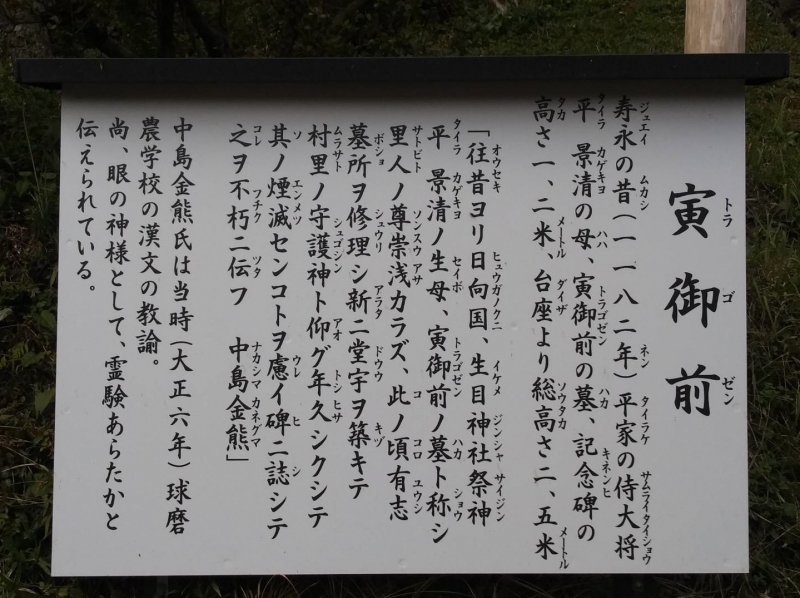 寅御前
寿永の昔(一一八二年)平家の侍大将
平 景清の母、寅御前の墓、記念碑の
高さ一、二米、台座より総高さ二、五米
「往昔ヨリ日向国、生目神社祭神
平 景清ノ生母、寅御前ノ墓ト称シ
里人ノ尊崇浅カラズ、此ノ頃有志
墓所ヲ修理シ新ニ堂宇ヲ築キテ
村里ノ守護神ト仰グ年久シクシテ
其ノ煙滅センコトヲ慮イ碑ニ誌シテ
之ヲ不朽ニ伝フ 中島金熊」
中島金熊氏は当時(大正六年)球磨
農学校の漢文の教諭。
尚、眼の神様として、霊験あらたかと
伝えられている。